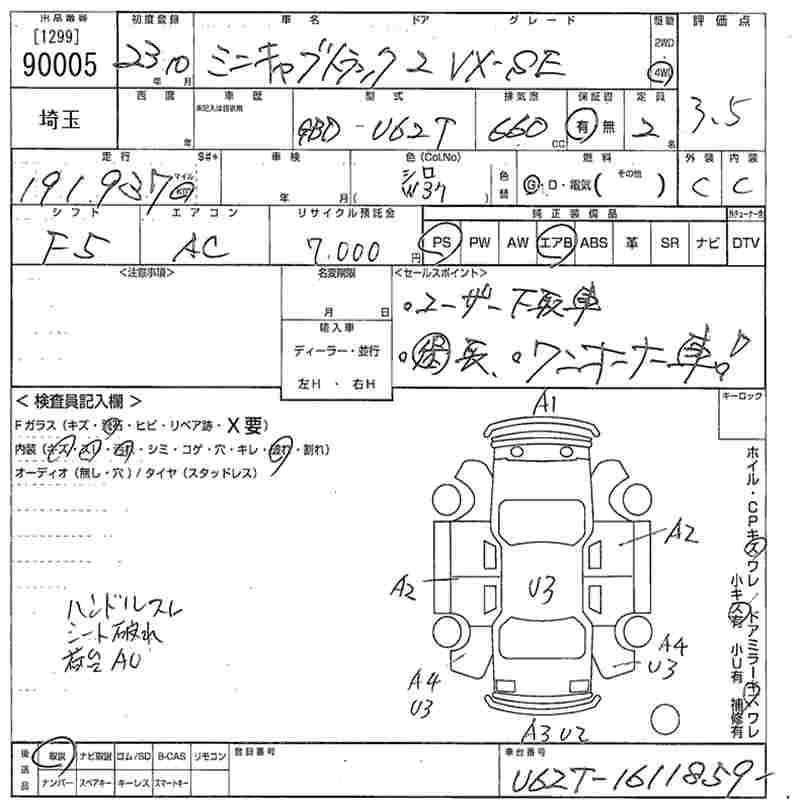 出品番号 初度登録 車名 ドア グレード 駆動 評価点
[1299]
90005 23 10 年 月 ミニキャブトラック 2 VX-SE 2WD 4WD
3.5
西歴 車歴 型式 排気量 保証書 定員
埼玉 年 未記入は自家用 GBD-U62T 660 CC 有 無 2 名
走行 S#* 車検 色(Col.No) 燃料 外装 内装
191,937 マイル km 年 月 シロ W37 色替 G・D・電気( その他 ) C C
シフト エアコン リサイクル預託金 純正装備品
F5 AC 7,000 円 PS PW AW エアB ABS 革 SR ナビ DTV
<注意事項> 名変期限 <セールスポイント>
月 日 ・ユーザー下取車
輸入車
ディーラー・並行
左H ・ 右H ・ワンオーナー車。
< 検査員記入欄 > キーロック
Fガラス(キズ・飛石・ヒビ・リペア跡・X要)
内装(キズ・スレ・汚れ・シミ・コゲ・穴・キレ・破れ・割れ)
オーディオ(無し・穴)/タイヤ(スタッドレス)
A1
A2
A2
U3
A4
U3
A4
U3
A3 U2
ハンドルスレ
シート破れ
荷台AU
ホイル・CPキズワレ/ドアミラーキズワレ
小キズ有 小U有 補修有
後送品 取説 ナビ取説 ロム/SD B-CAS リモコン 登録番号 車台番号
ナンバー スペアキー キーレス スマートキー U62T-1611859